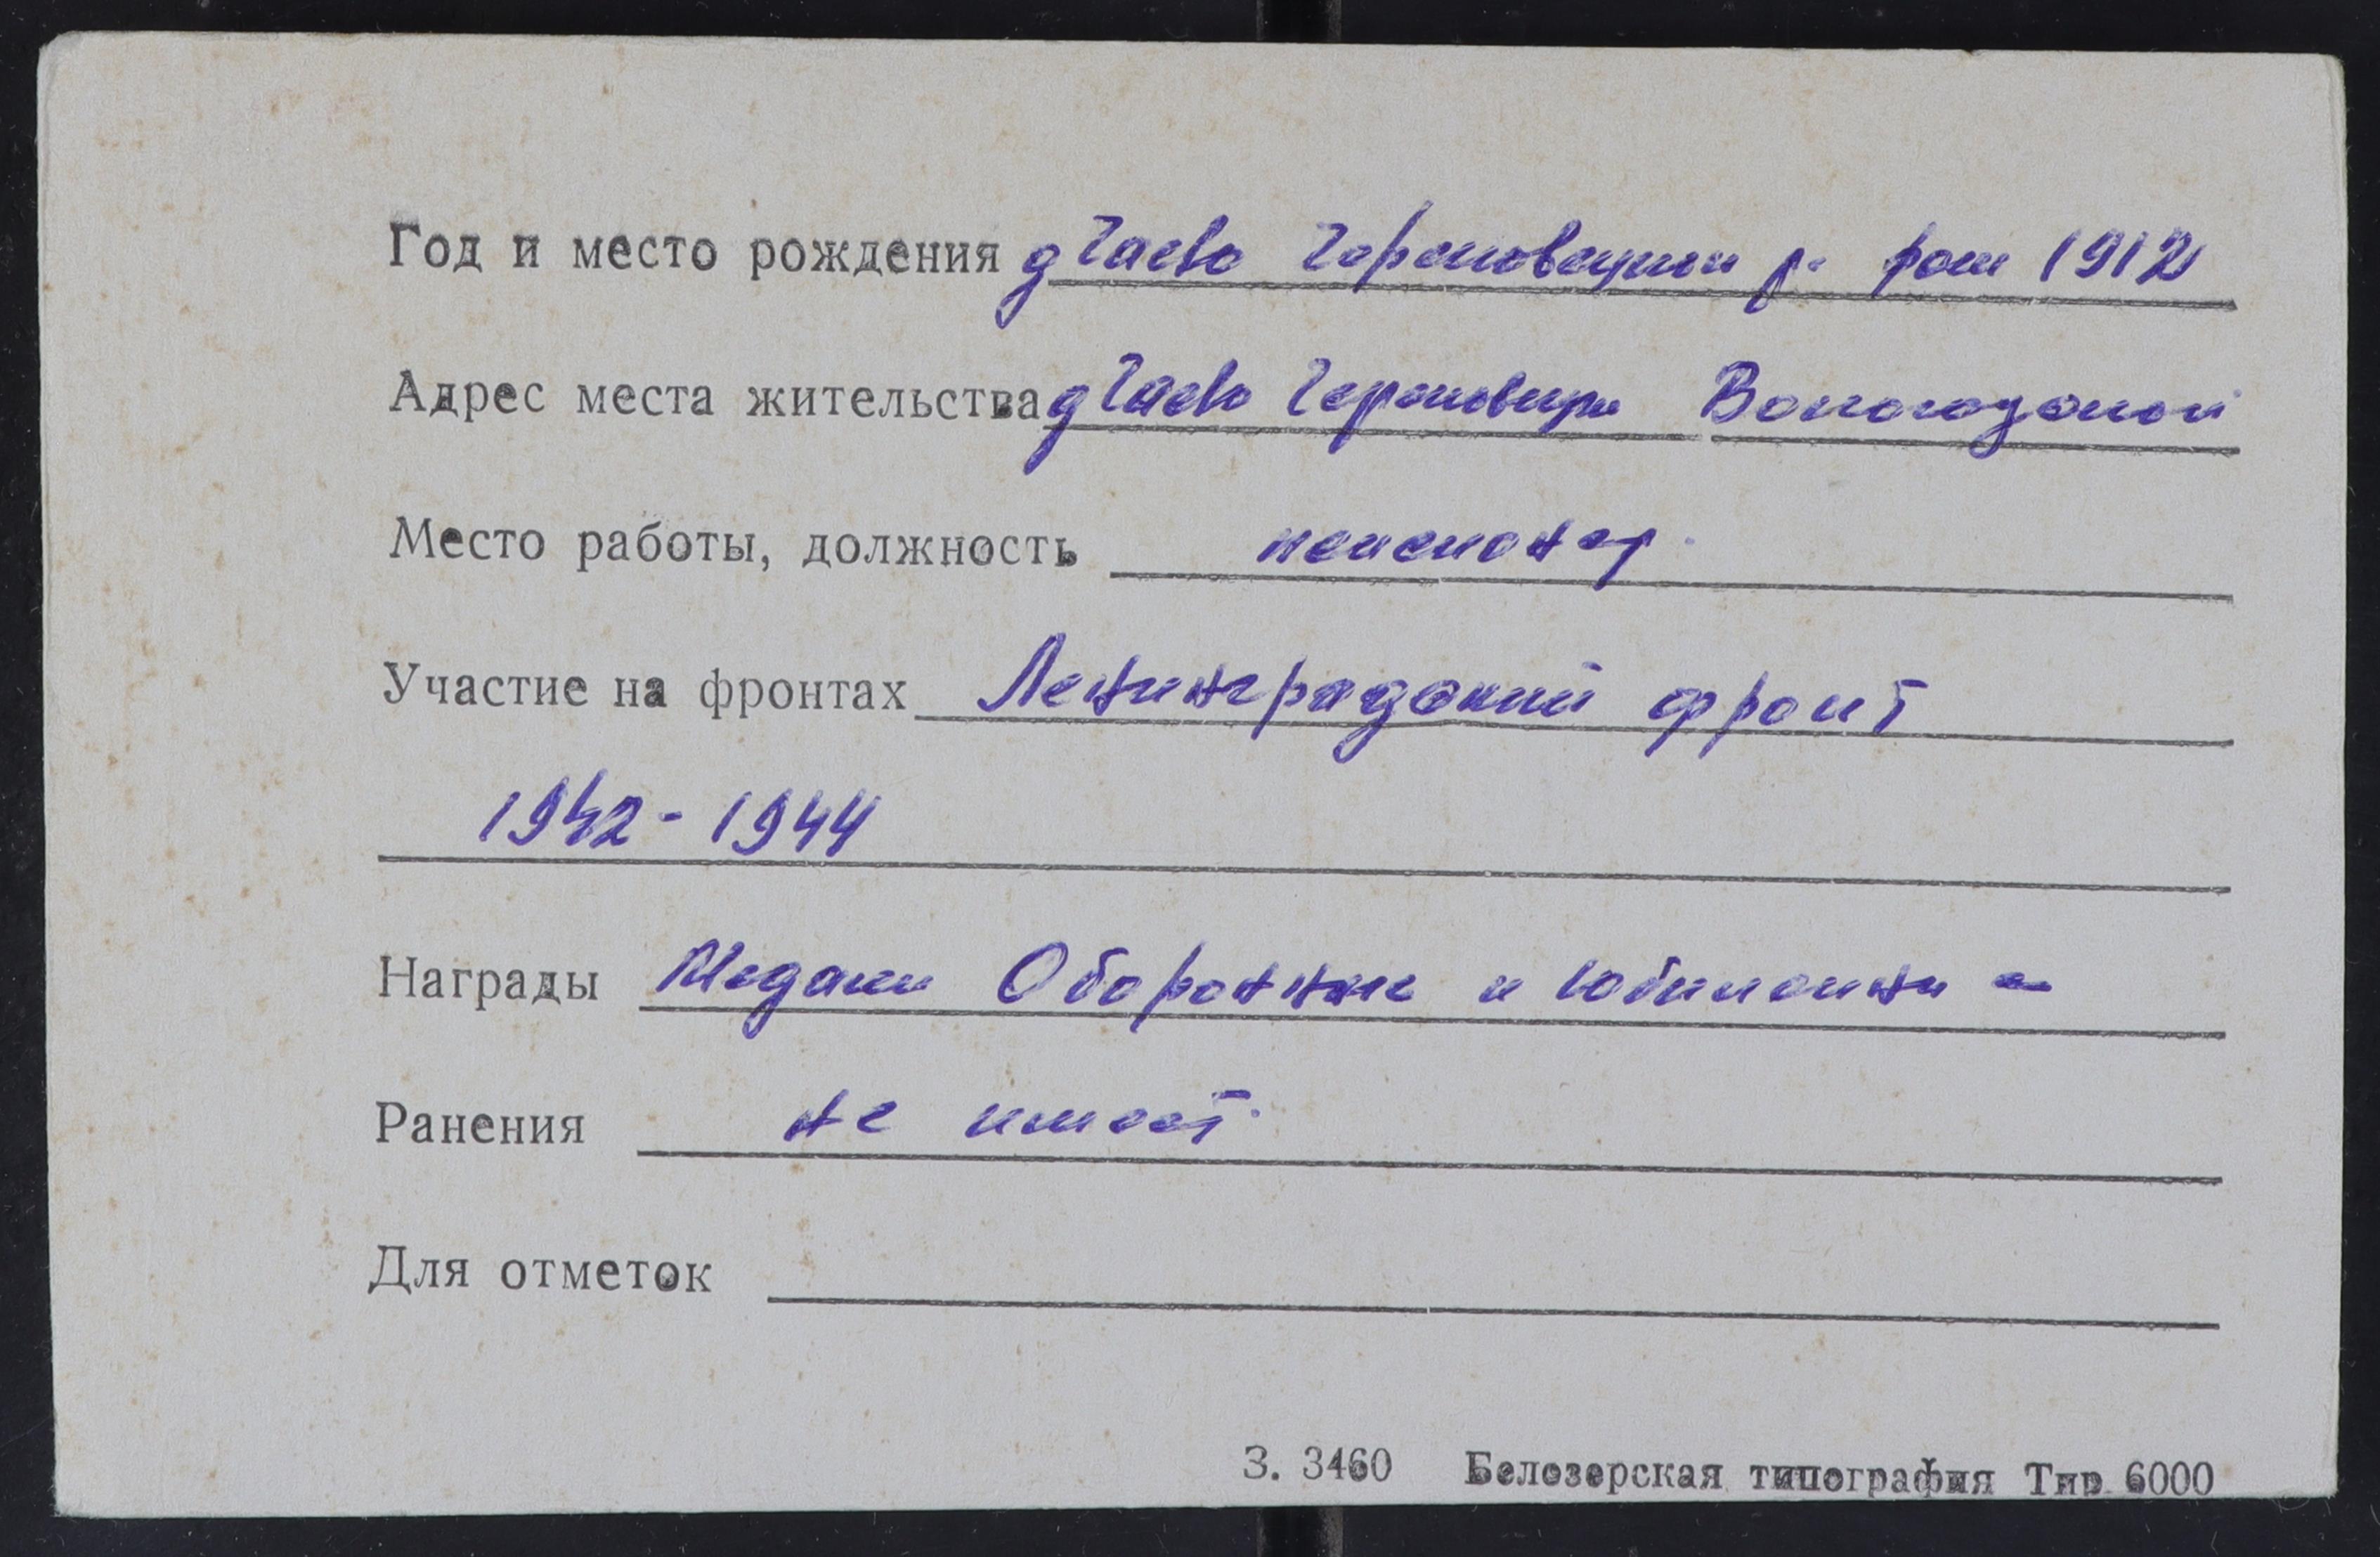 Год и место рождения д Чаево Череповецкий р. рож 1912
Адрес места жительства д Чаево Череповецк Вологодской
Место работы, должность пенсионер.
Участие на фронтах Ленинградский фронт
1942 - 1944
Награды Медали Оборонные и юбилейны
Ранения не имеет.
Для отметок
З. 3460 Белозерская типография Тир 6000